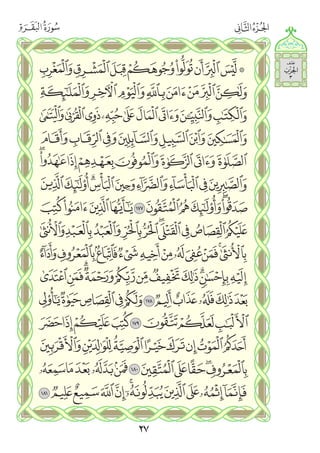 الجُزْءُ الثَّانِي سُورَةُ البَقَرَةِ
۞ لَّيْسَ الْبِرَّ أَن تُوَلُّوا وُجُوهَكُمْ قِبَلَ الْمَشْرِقِ وَالْمَغْرِبِ
وَلَٰكِنَّ الْبِرَّ مَنْ آمَنَ بِاللَّهِ وَالْيَوْمِ الْآخِرِ وَالْمَلَائِكَةِ
وَالْكِتَابِ وَالنَّبِيِّينَ وَآتَى الْمَالَ عَلَىٰ حُبِّهِ ذَوِي الْقُرْبَىٰ وَالْيَتَامَىٰ
وَالْمَسَاكِينَ وَابْنَ السَّبِيلِ وَالسَّائِلِينَ وَفِي الرِّقَابِ وَأَقَامَ
الصَّلَاةَ وَآتَى الزَّكَاةَ وَالْمُوفُونَ بِعَهْدِهِمْ إِذَا عَاهَدُوا ۖ
وَالصَّابِرِينَ فِي الْبَأْسَاءِ وَالضَّرَّاءِ وَحِينَ الْبَأْسِ ۗ أُولَٰئِكَ الَّذِينَ
صَدَقُوا ۖ وَأُولَٰئِكَ هُمُ الْمُتَّقُونَ ١٧٧ يَا أَيُّهَا الَّذِينَ آمَنُوا كُتِبَ
عَلَيْكُمُ الْقِصَاصُ فِي الْقَتْلَى ۖ الْحُرُّ بِالْحُرِّ وَالْعَبْدُ بِالْعَبْدِ وَالْأُنثَىٰ
بِالْأُنثَىٰ ۚ فَمَنْ عُفِيَ لَهُ مِنْ أَخِيهِ شَيْءٌ فَاتِّبَاعٌ بِالْمَعْرُوفِ وَأَدَاءٌ
إِلَيْهِ بِإِحْسَانٍ ۗ ذَٰلِكَ تَخْفِيفٌ مِّن رَّبِّكُمْ وَرَحْمَةٌ ۗ فَمَنِ اعْتَدَىٰ
بَعْدَ ذَٰلِكَ فَلَهُ عَذَابٌ أَلِيمٌ ١٧٨ وَلَكُمْ فِي الْقِصَاصِ حَيَاةٌ يَا أُولِي
الْأَلْبَابِ لَعَلَّكُمْ تَتَّقُونَ ١٧٩ كُتِبَ عَلَيْكُمْ إِذَا حَضَرَ
أَحَدَكُمُ الْمَوْتُ إِن تَرَكَ خَيْرًا الْوَصِيَّةُ لِلْوَالِدَيْنِ وَالْأَقْرَبِينَ
بِالْمَعْرُوفِ ۖ حَقًّا عَلَى الْمُتَّقِينَ ١٨٠ فَمَن بَدَّلَهُ بَعْدَمَا سَمِعَهُ
فَإِنَّمَا إِثْمُهُ عَلَى الَّذِينَ يُبَدِّلُونَهُ ۚ إِنَّ اللَّهَ سَمِيعٌ عَلِيمٌ ١٨١
٢٧